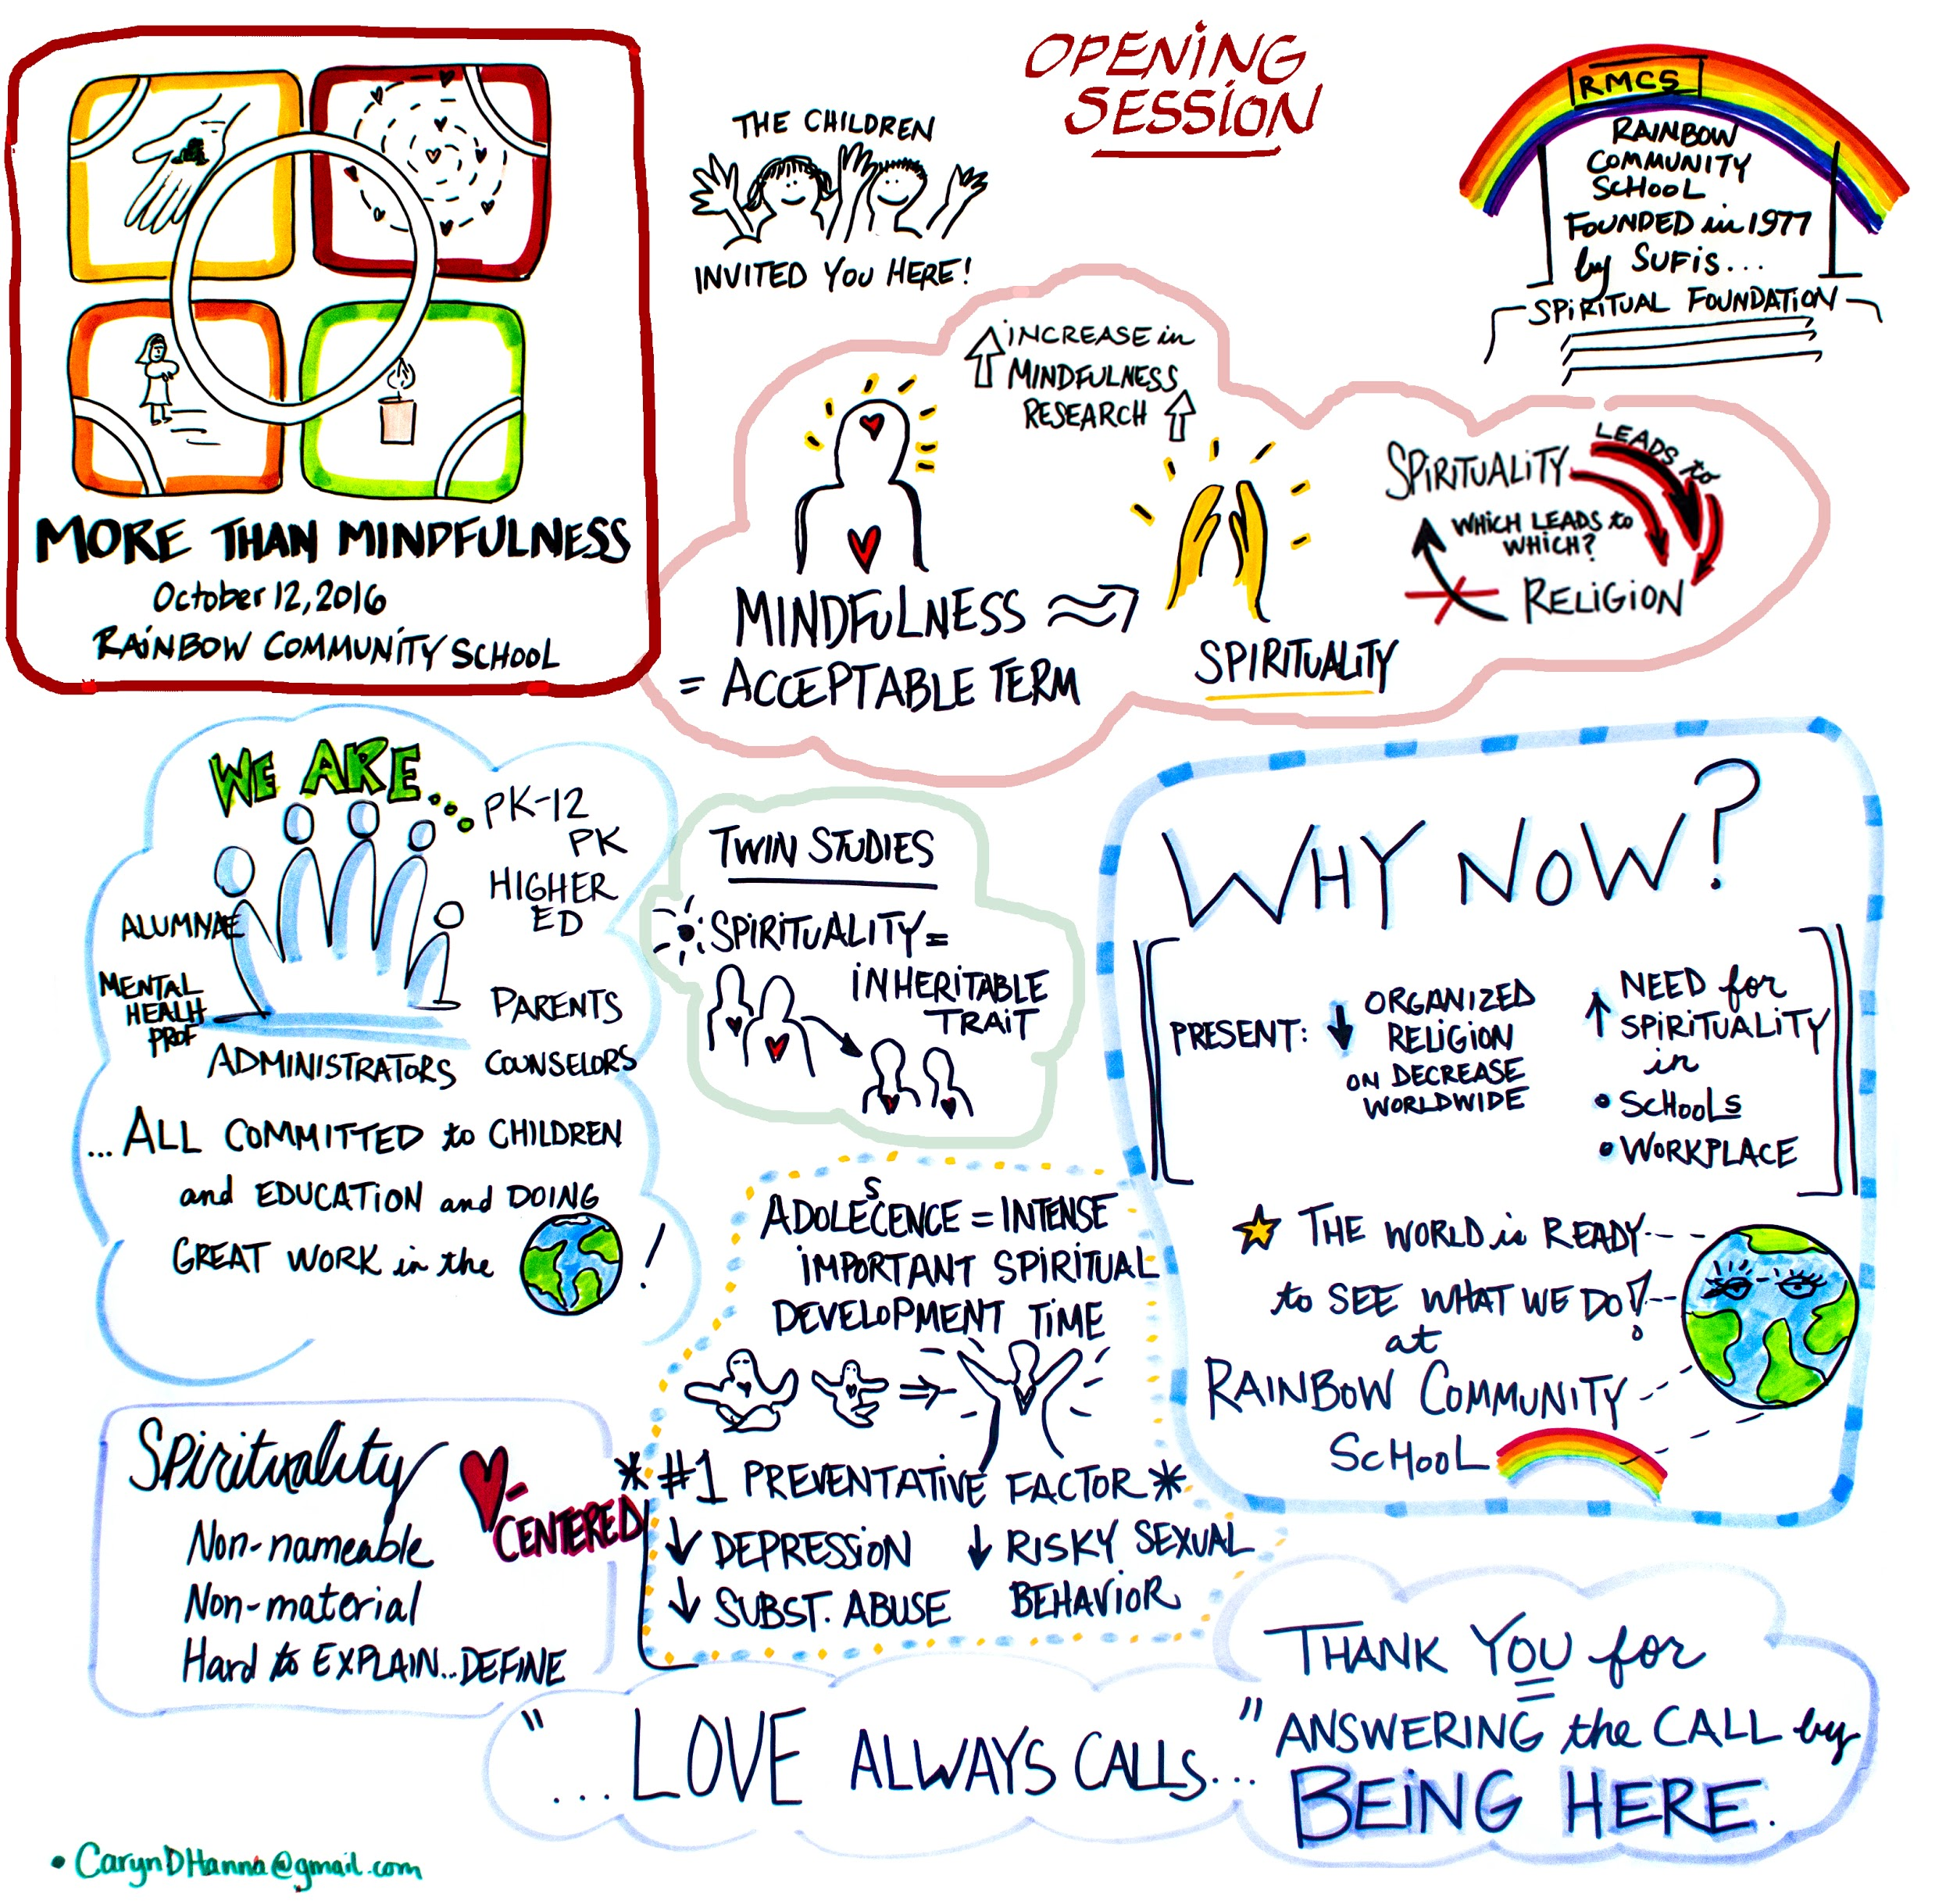 OPENING
SESSION
MORE THAN MINDFULNESS
October 12, 2016
RAINBOW COMMUNITY SCHOOL
THE CHILDREN
INVITED YOU HERE!
RMCS
RAINBOW
COMMUNITY
SCHOOL
FOUNDED in 1977
by SUFIS...
SPIRITUAL FOUNDATION
INCREASE in
MINDFULNESS
RESEARCH
MINDFULNESS
= ACCEPTABLE TERM
SPIRITUALITY
SPIRITUALITY
LEADS to
WHICH LEADS to
WHICH?
RELIGION
WE ARE...
PK-12
PK
HIGHER
ED
ALUMNAE
MENTAL
HEALH
PROF
PARENTS
ADMINISTRATORS
COUNSELORS
...ALL COMMITTED to CHILDREN
and EDUCATION and DOING
GREAT WORK in the !
TWIN STUDIES
SPIRITUALITY =
INHERITABLE
TRAIT
WHY NOW?
PRESENT:
ORGANIZED
RELIGION
ON DECREASE
WORLDWIDE
NEED for
SPIRITUALITY
in
• SCHOOLS
• WORKPLACE
THE WORLD is READY
to SEE WHAT WE DO!
at
RAINBOW COMMUNITY
SCHOOL
ADOLESCENCE = INTENSE
IMPORTANT SPIRITUAL
DEVELOPMENT TIME
* #1 PREVENTATIVE FACTOR *
↓ DEPRESSION
↓ SUBST. ABUSE
↓ RISKY SEXUAL
BEHAVIOR
Spirituality
-CENTERED
Non-nameable
Non-material
Hard to EXPLAIN...DEFINE
"...LOVE ALWAYS CALLS..."
THANK YOU for
ANSWERING the CALL by
BEING HERE.
• CarynDHanna@gmail.com